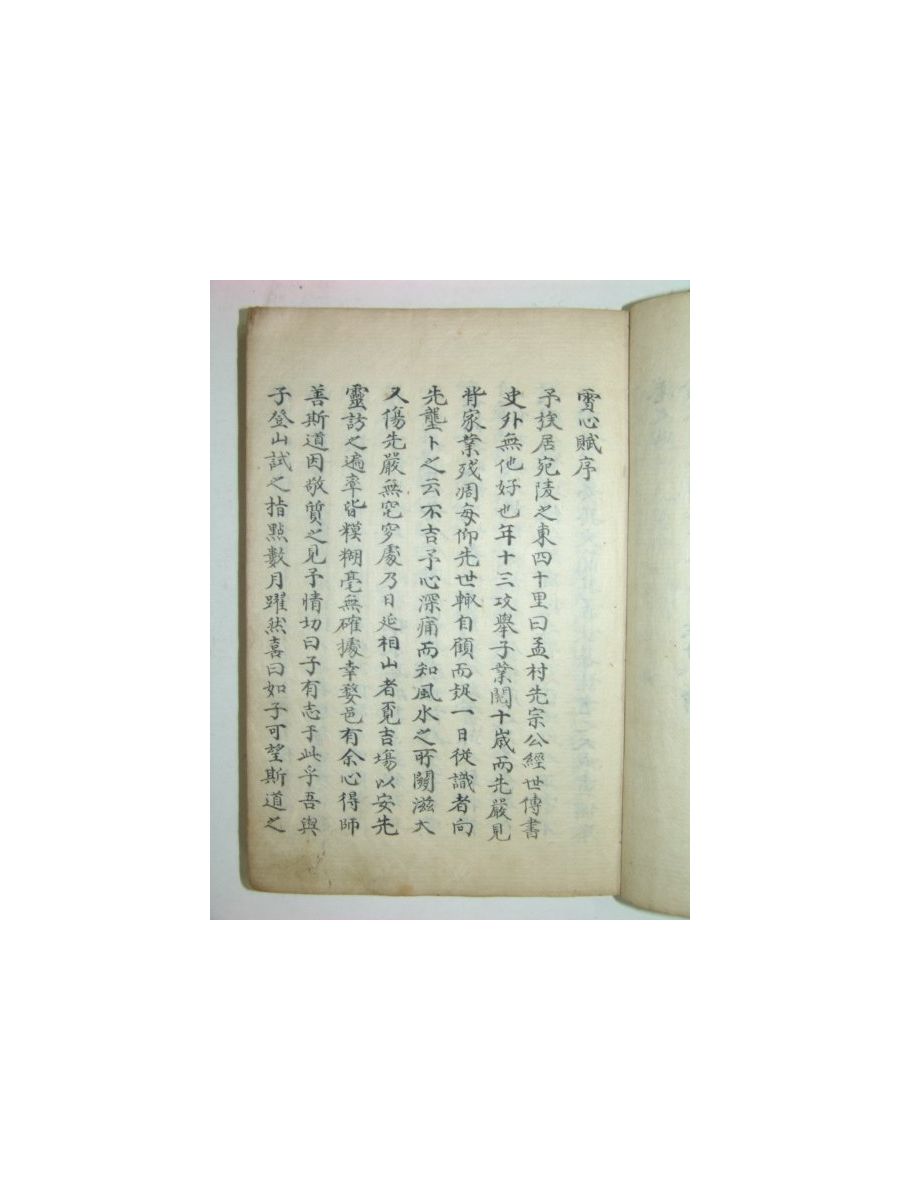 雪心賦序
予族居宛陵之東四十里曰孟村先宗公經世傳書
史外無他好也年十三攻舉子業閱十歲而先嚴見
背家業殘凋每仰先世輙自顧而捉一日從識者向
先壟卜之云不吉予心深痛而知風水之所關滋大
又傷先嚴無窀穸處乃日延相山者覓吉塲以安先
靈訪之遍率皆糢糊毫無確據幸婺邑有余心得師
善斯道因敬質之見予情切曰子有志于此乎吾與
子登山試之指點數月躍然喜曰如子可望斯道之